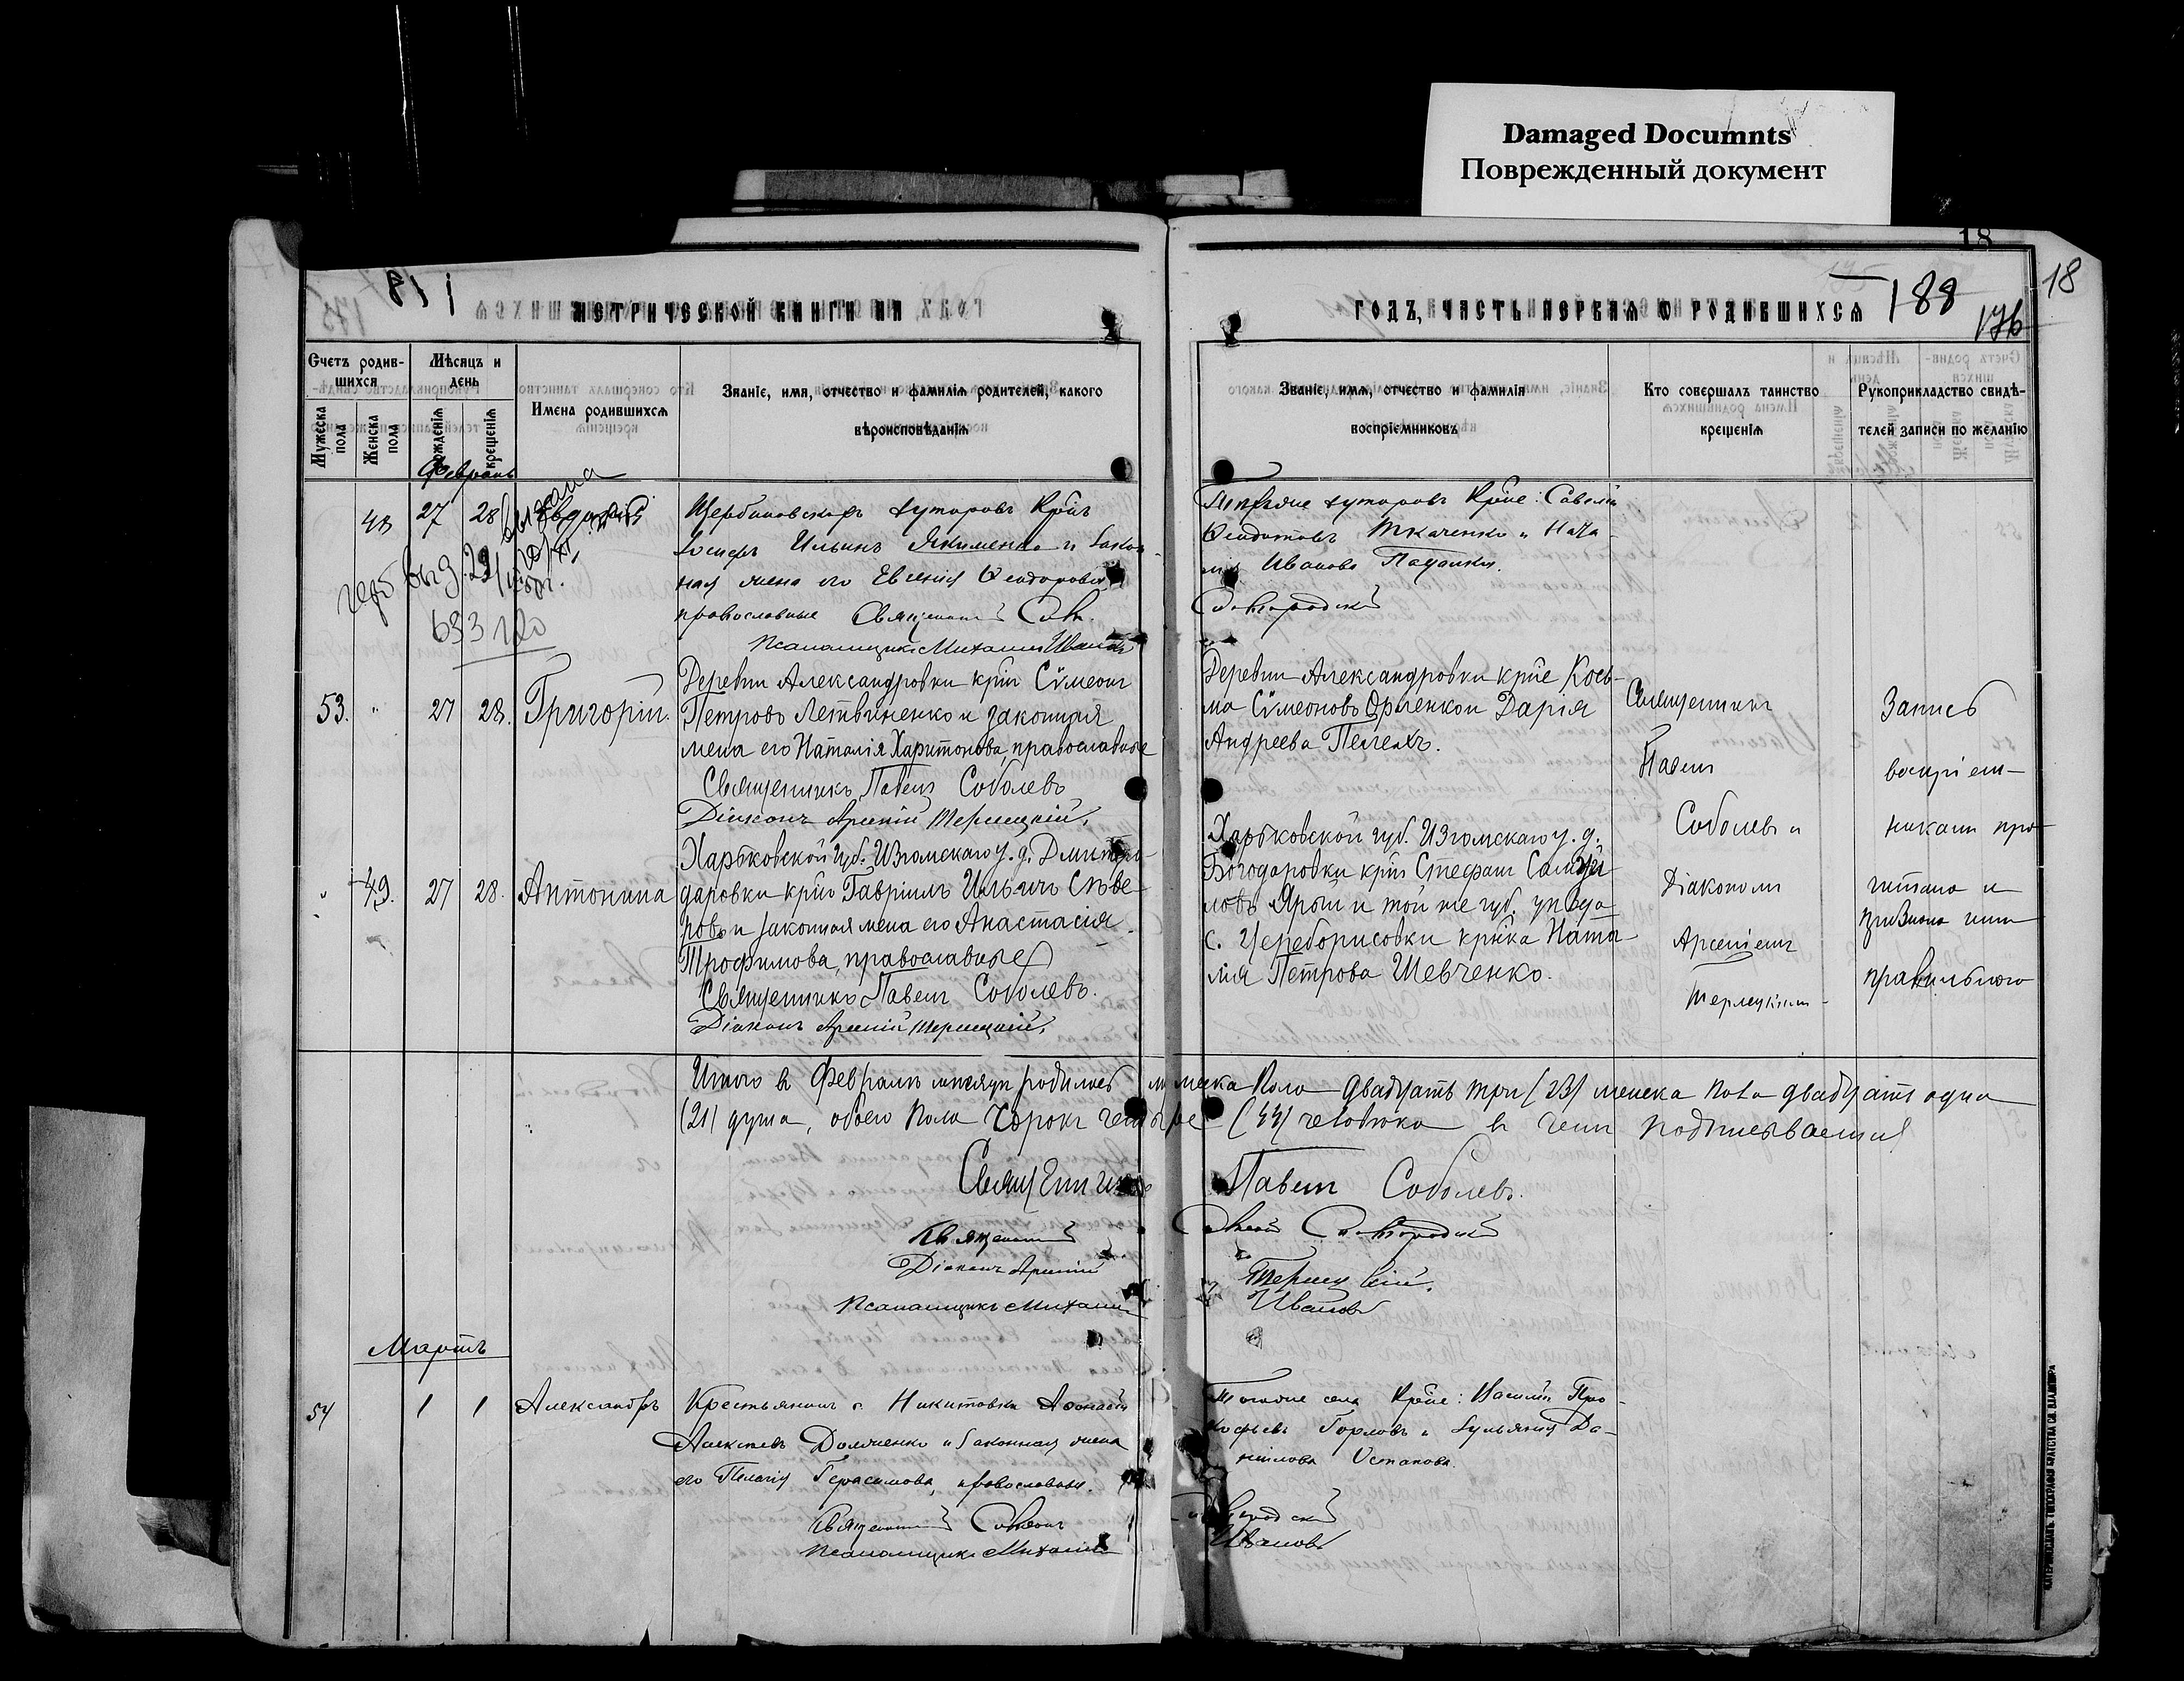 Damaged Documnts
Поврежденный документ
18
18
188
176
МЕТРИЧЕСКОЙ КНИГИ НА
ГОДЪ, ЧАСТЬ ПЕРВАЯ О РОДИВШИХСЯ
Счетъ родив-
шихся
Мужеска
пола
Женска
пола
Мѣсяцъ и
день
рожденія
крещенія
Имена родившихся
Званіе, имя, отчество и фамилія родителей, какого
вѣроисповѣданія
Званіе, имя, отчество и фамилія
воспріемниковъ
Кто совершалъ таинство
крещенія
Рукоприкладство свидѣ-
телей записи по желанію
Февраль
48 27 28
Щербиновскихъ хуторовъ Кр̃нъ
Іосифъ Ильинъ Якименко и закон-
ная жена его Евгенія Ѳеодорова
православные
Псаломщикъ Михаилъ Ивановъ
хуторовъ Кр̃не: Савелій
Ѳедотовъ Ткаченко и Ната-
Иванова
53. " 27 28. Григорій.
Деревни Александровки кр̃нъ Сѵмеонъ
Петровъ Летвиненко и законная
жена его Наталія Харитонова, православные
Священникъ Павелъ Соболевъ
Діаконъ Арсеній Терлецкій.
Деревни Александровки кр̃не Кось-
ма Сѵмеоновъ и Дарія
Андреева
Священникъ
Павелъ
Соболевъ и
Діакономъ
Арсеніемъ
Терлецкимъ
Запись
воспріем-
никами про-
читана и
признана ими
правильною
" 49. 27 28. Антонина
Харьковской губ. Изюмскаго у. д. Дмитро-
даровки кр̃нъ Гавріилъ Ильинъ Сѣве-
ровъ и законная жена его Анастасія
Трофимова, православные
Священникъ Павелъ Соболевъ.
Діаконъ Арсеній Терлецкій.
Харьковской губ. Изюмскаго у. д.
Богодаровки кр̃нъ Стефанъ Самуи-
ловъ Ярый и той же губ. уѣзда
с. Цареборисовки кр̃нка Ната-
лія Петрова Шевченко.
Итого въ Февралѣ мѣсяцѣ родилось мужеска пола двадцать три (23) женска пола двадцать одна
(21) душа, обоего пола сорокъ четыре (44) человѣка въ чемъ подписываемся
Священникъ Павелъ Соболевъ.
Діаконъ Арсеній Терлецкій.
Псаломщикъ Михаилъ Ивановъ
Мартъ
54 1 1 Александръ
Крестьянинъ с. Никитовки Аѳанасій
Алексѣевъ Долженко и законная жена
его Пелагія Герасимова, православные.
Псаломщикъ Михаилъ Ивановъ
Того же села Кр̃не: Василій Про-
кофьевъ Горловъ и Іульянія Да-
нилова Остапова.